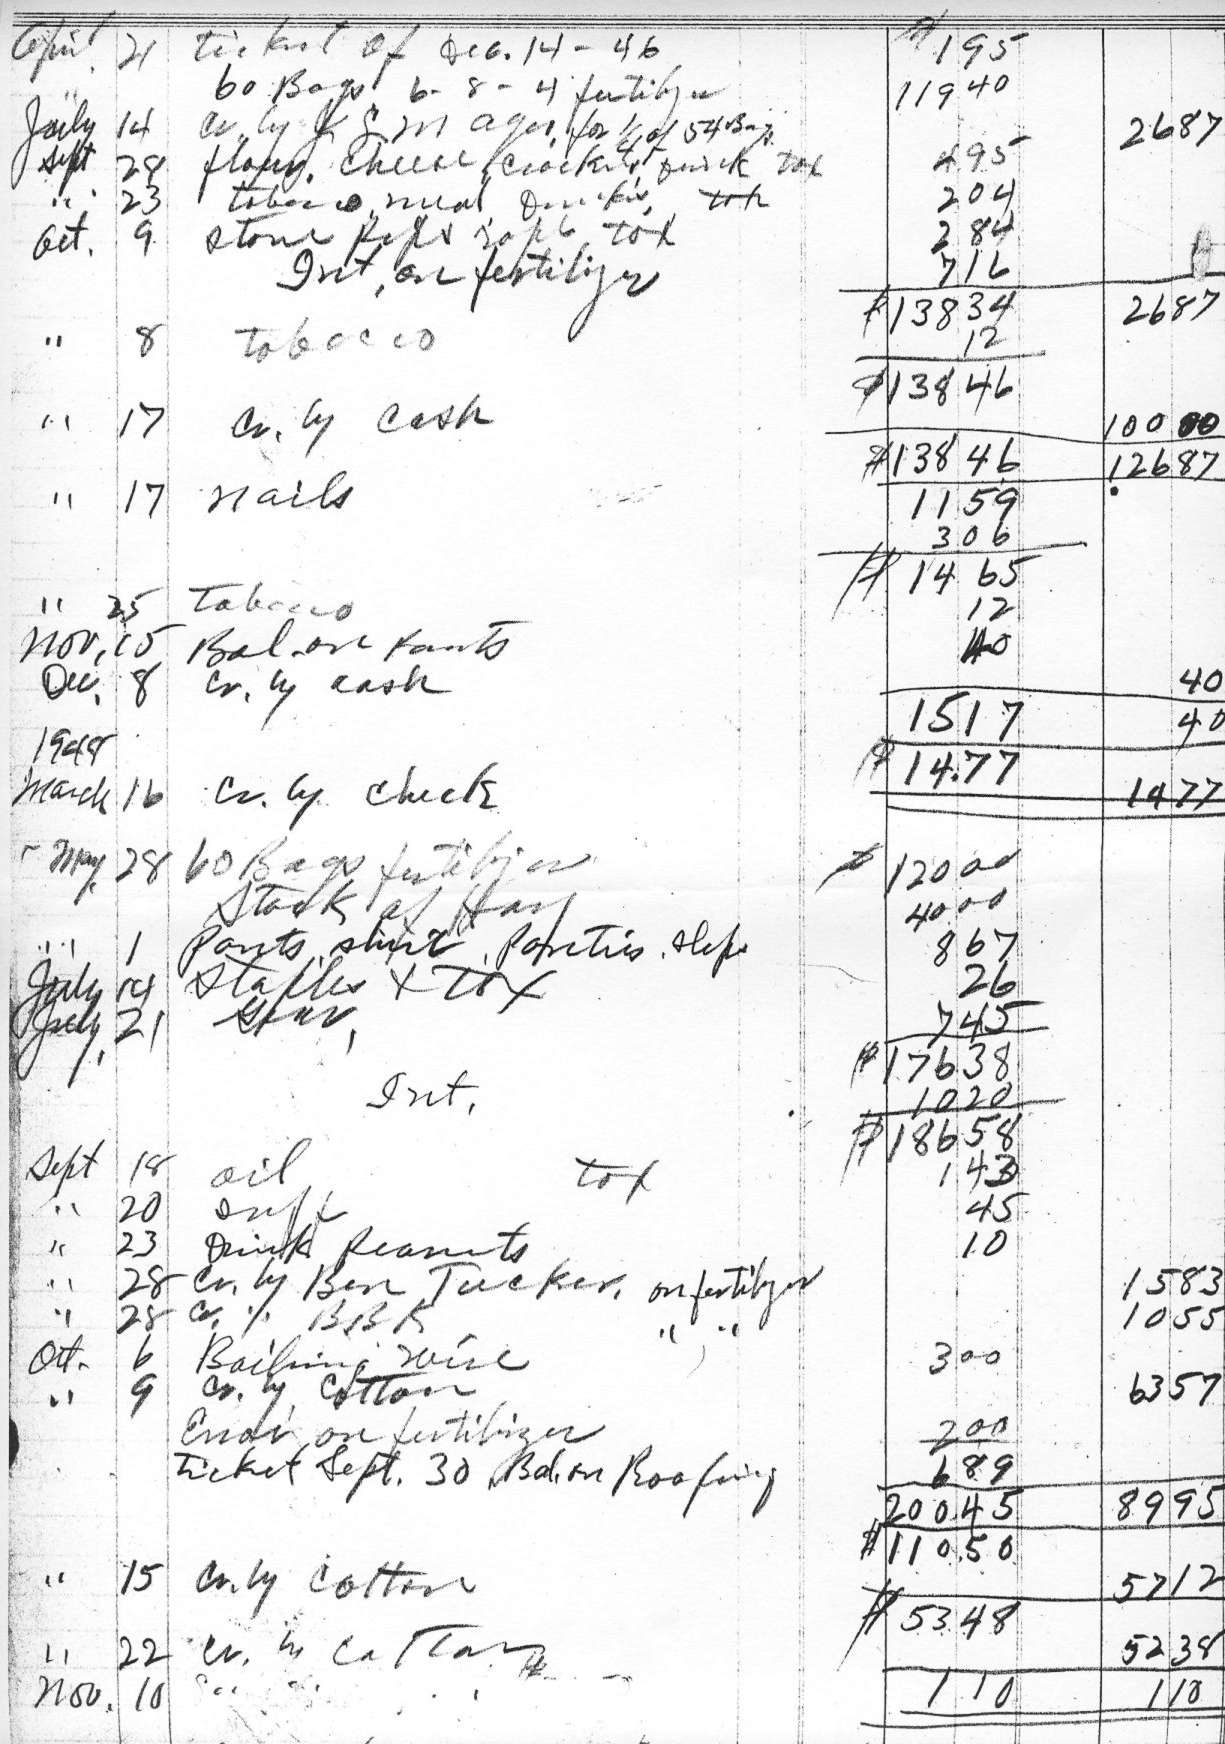 April 21 ticket of Dec. 14-46 195
60 Bags 6-8-4 fertilizer 11940
July 14 Cr. by for 1/2 of 54 Bags 2687
Sept 28 flour, cheese, crackers, tax 495
" 23 tobacco, meal, Drinks, tax 204
Oct. 9 stone tax 284
Int. on fertilizer 716
$13834 2687
" 8 tobacco 12
$13846
" 17 Cr. by Cash 10000
$13846 12687
" 17 nails 1159
306
$1465
" 25 tobacco 12
Nov. 15 Bal. on Pants 40
Dec. 8 Cr. by cash 40
1517 40
1948 $14.77
March 16 Cr. by check 1477
May 28 60 Bags fertilizer $12000
Stack of Hay 4000
" 1 Pants, shirt, Panties, slips 867
July 14 Staples + tax 26
July, 21 745
$17638
Int. 1020
$18658
Sept 18 oil tax 143
" 20 45
" 23 Drink Peanuts 10
" 28 Cr. by Ben Tucker, on fertilizer 1583
" 28 Cr. " " " 1055
Oct. 6 Bailing wire 300
" 9 Cr. by Cotton 6357
Error on fertilizer 200
ticket Sept. 30 Bal. on Roofing 689
20045 8995
$110.50
" 15 Cr. by Cotton 5712
$5348
" 22 Cr. by Cotton 5238
Nov. 10 110 110